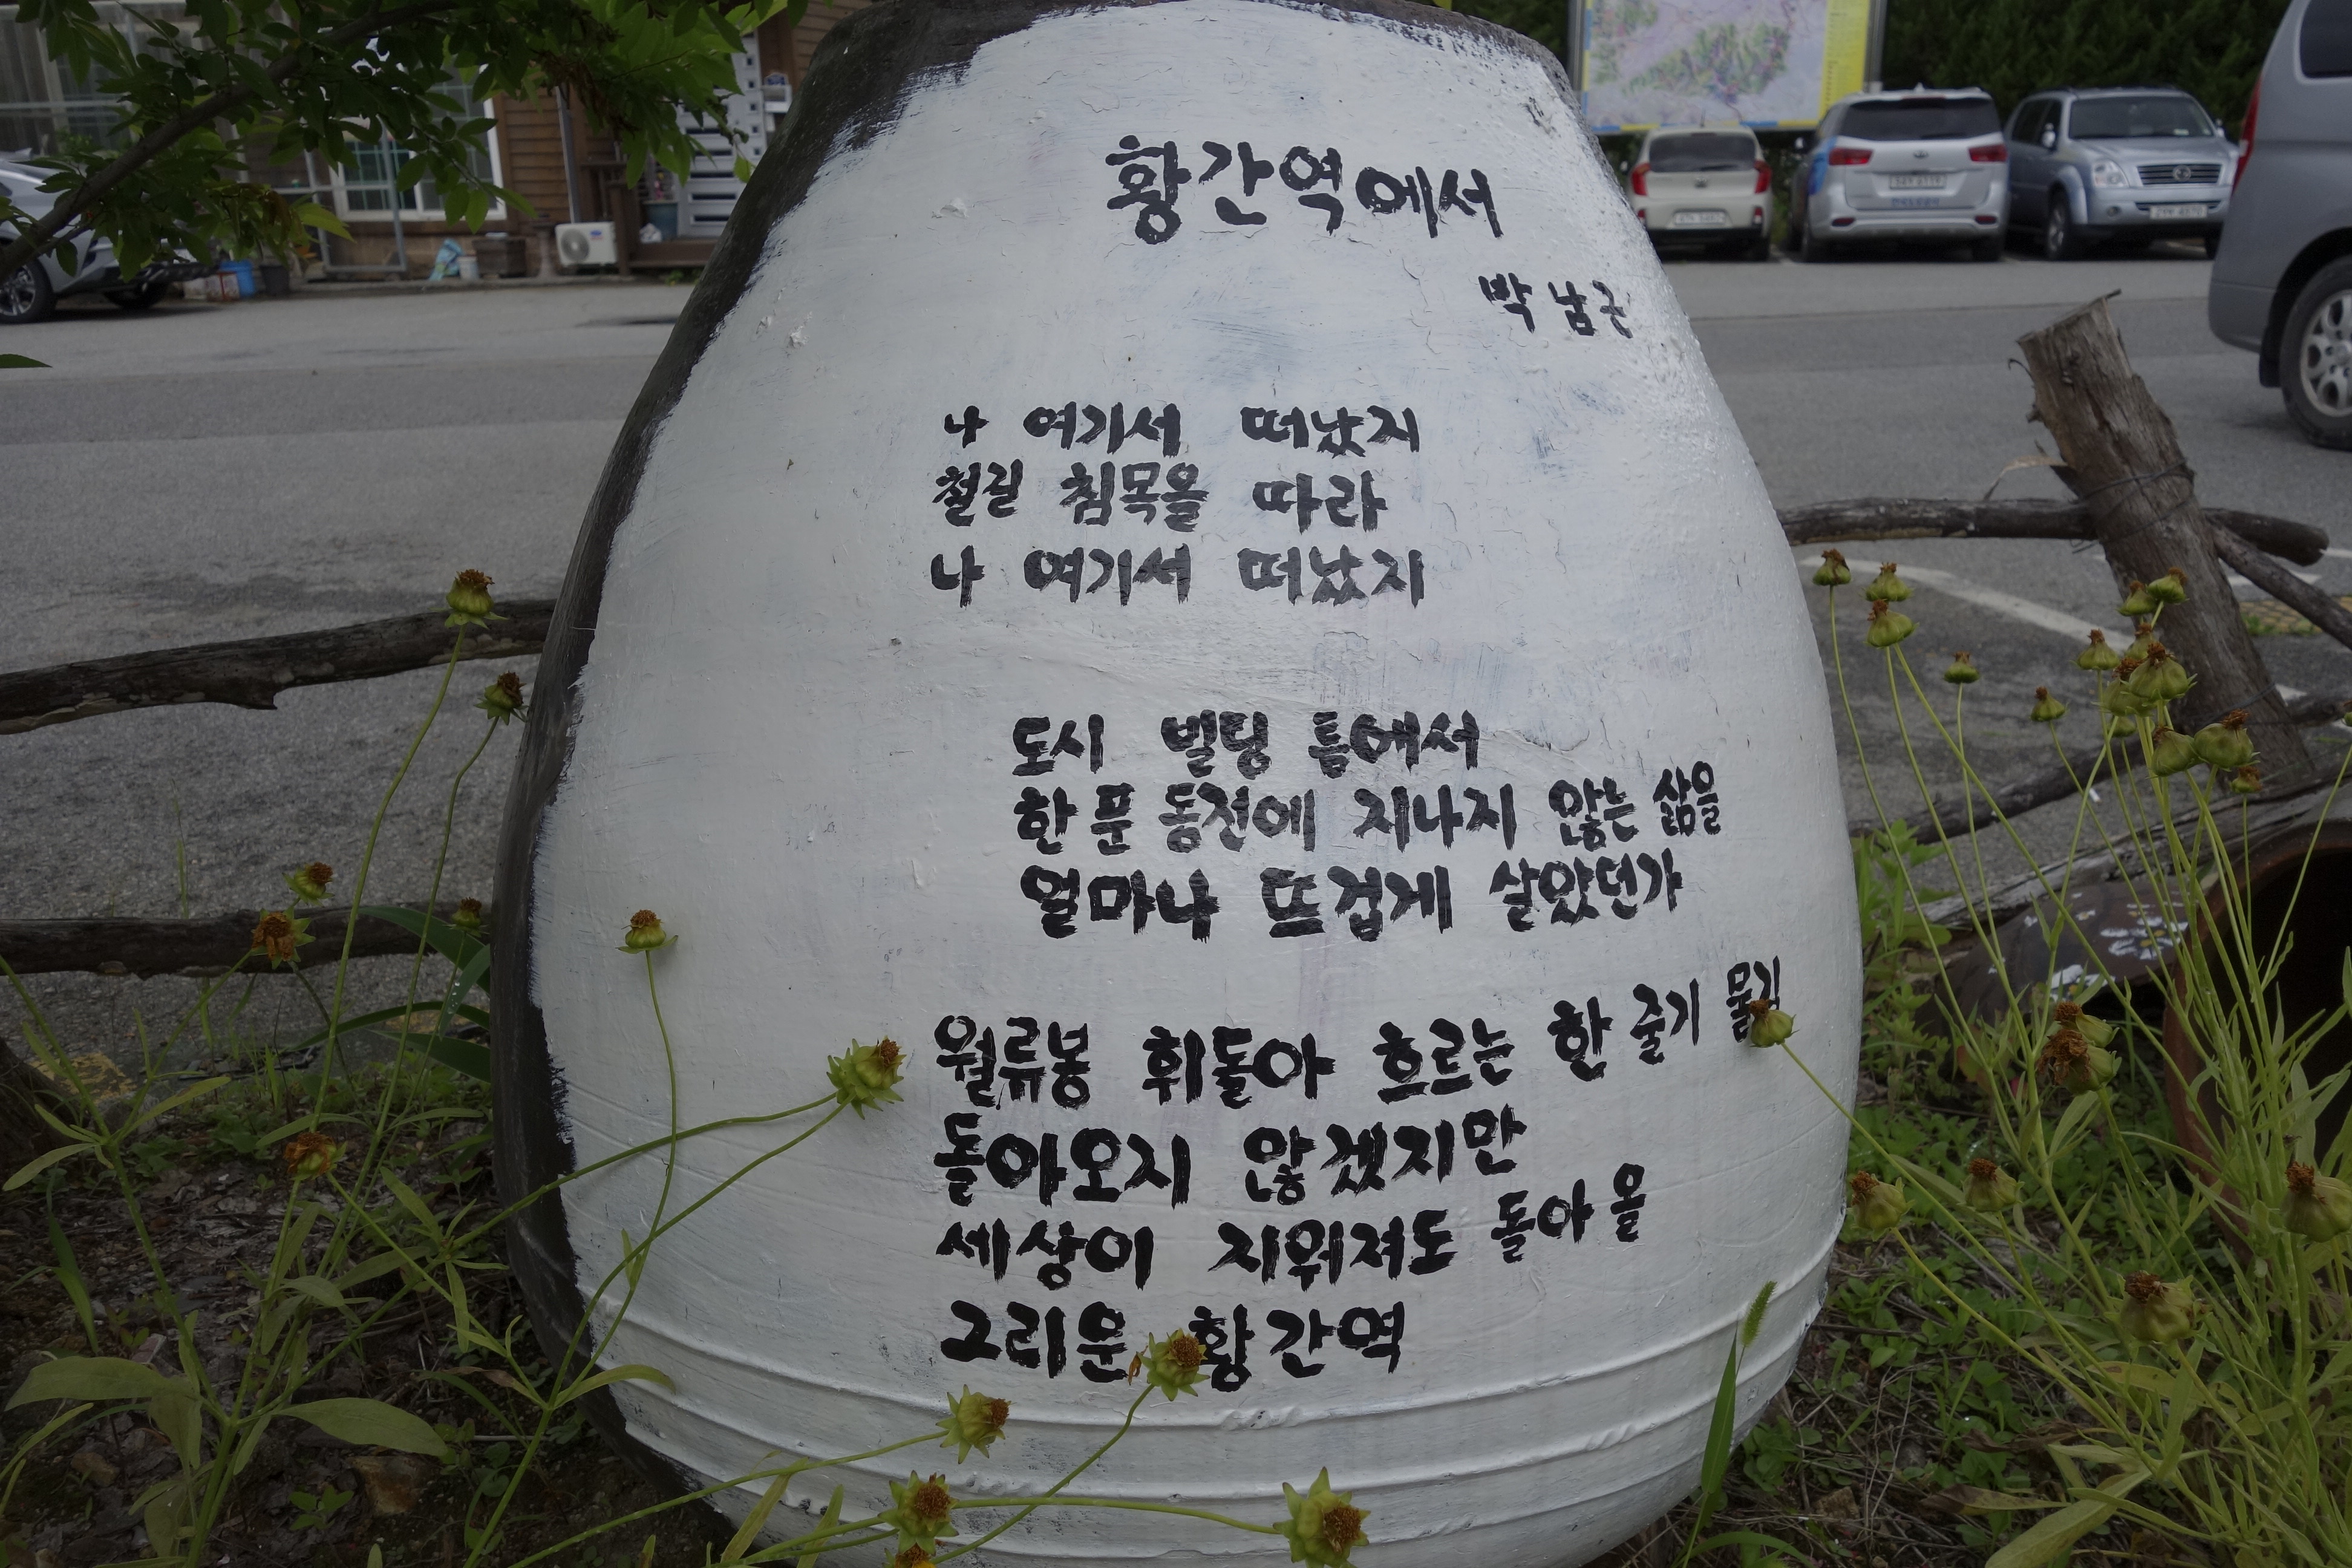 황간역에서
박남근
나 여기서 떠났지
철길 침목을 따라
나 여기서 떠났지
도시 빌딩 틈에서
한 푼 동전에 지나지 않는 삶을
얼마나 뜨겁게 살았던가
월류봉 휘돌아 흐르는 한 줄기 물길
돌아오지 않겠지만
세상이 지워져도 돌아 올
그리운 황간역